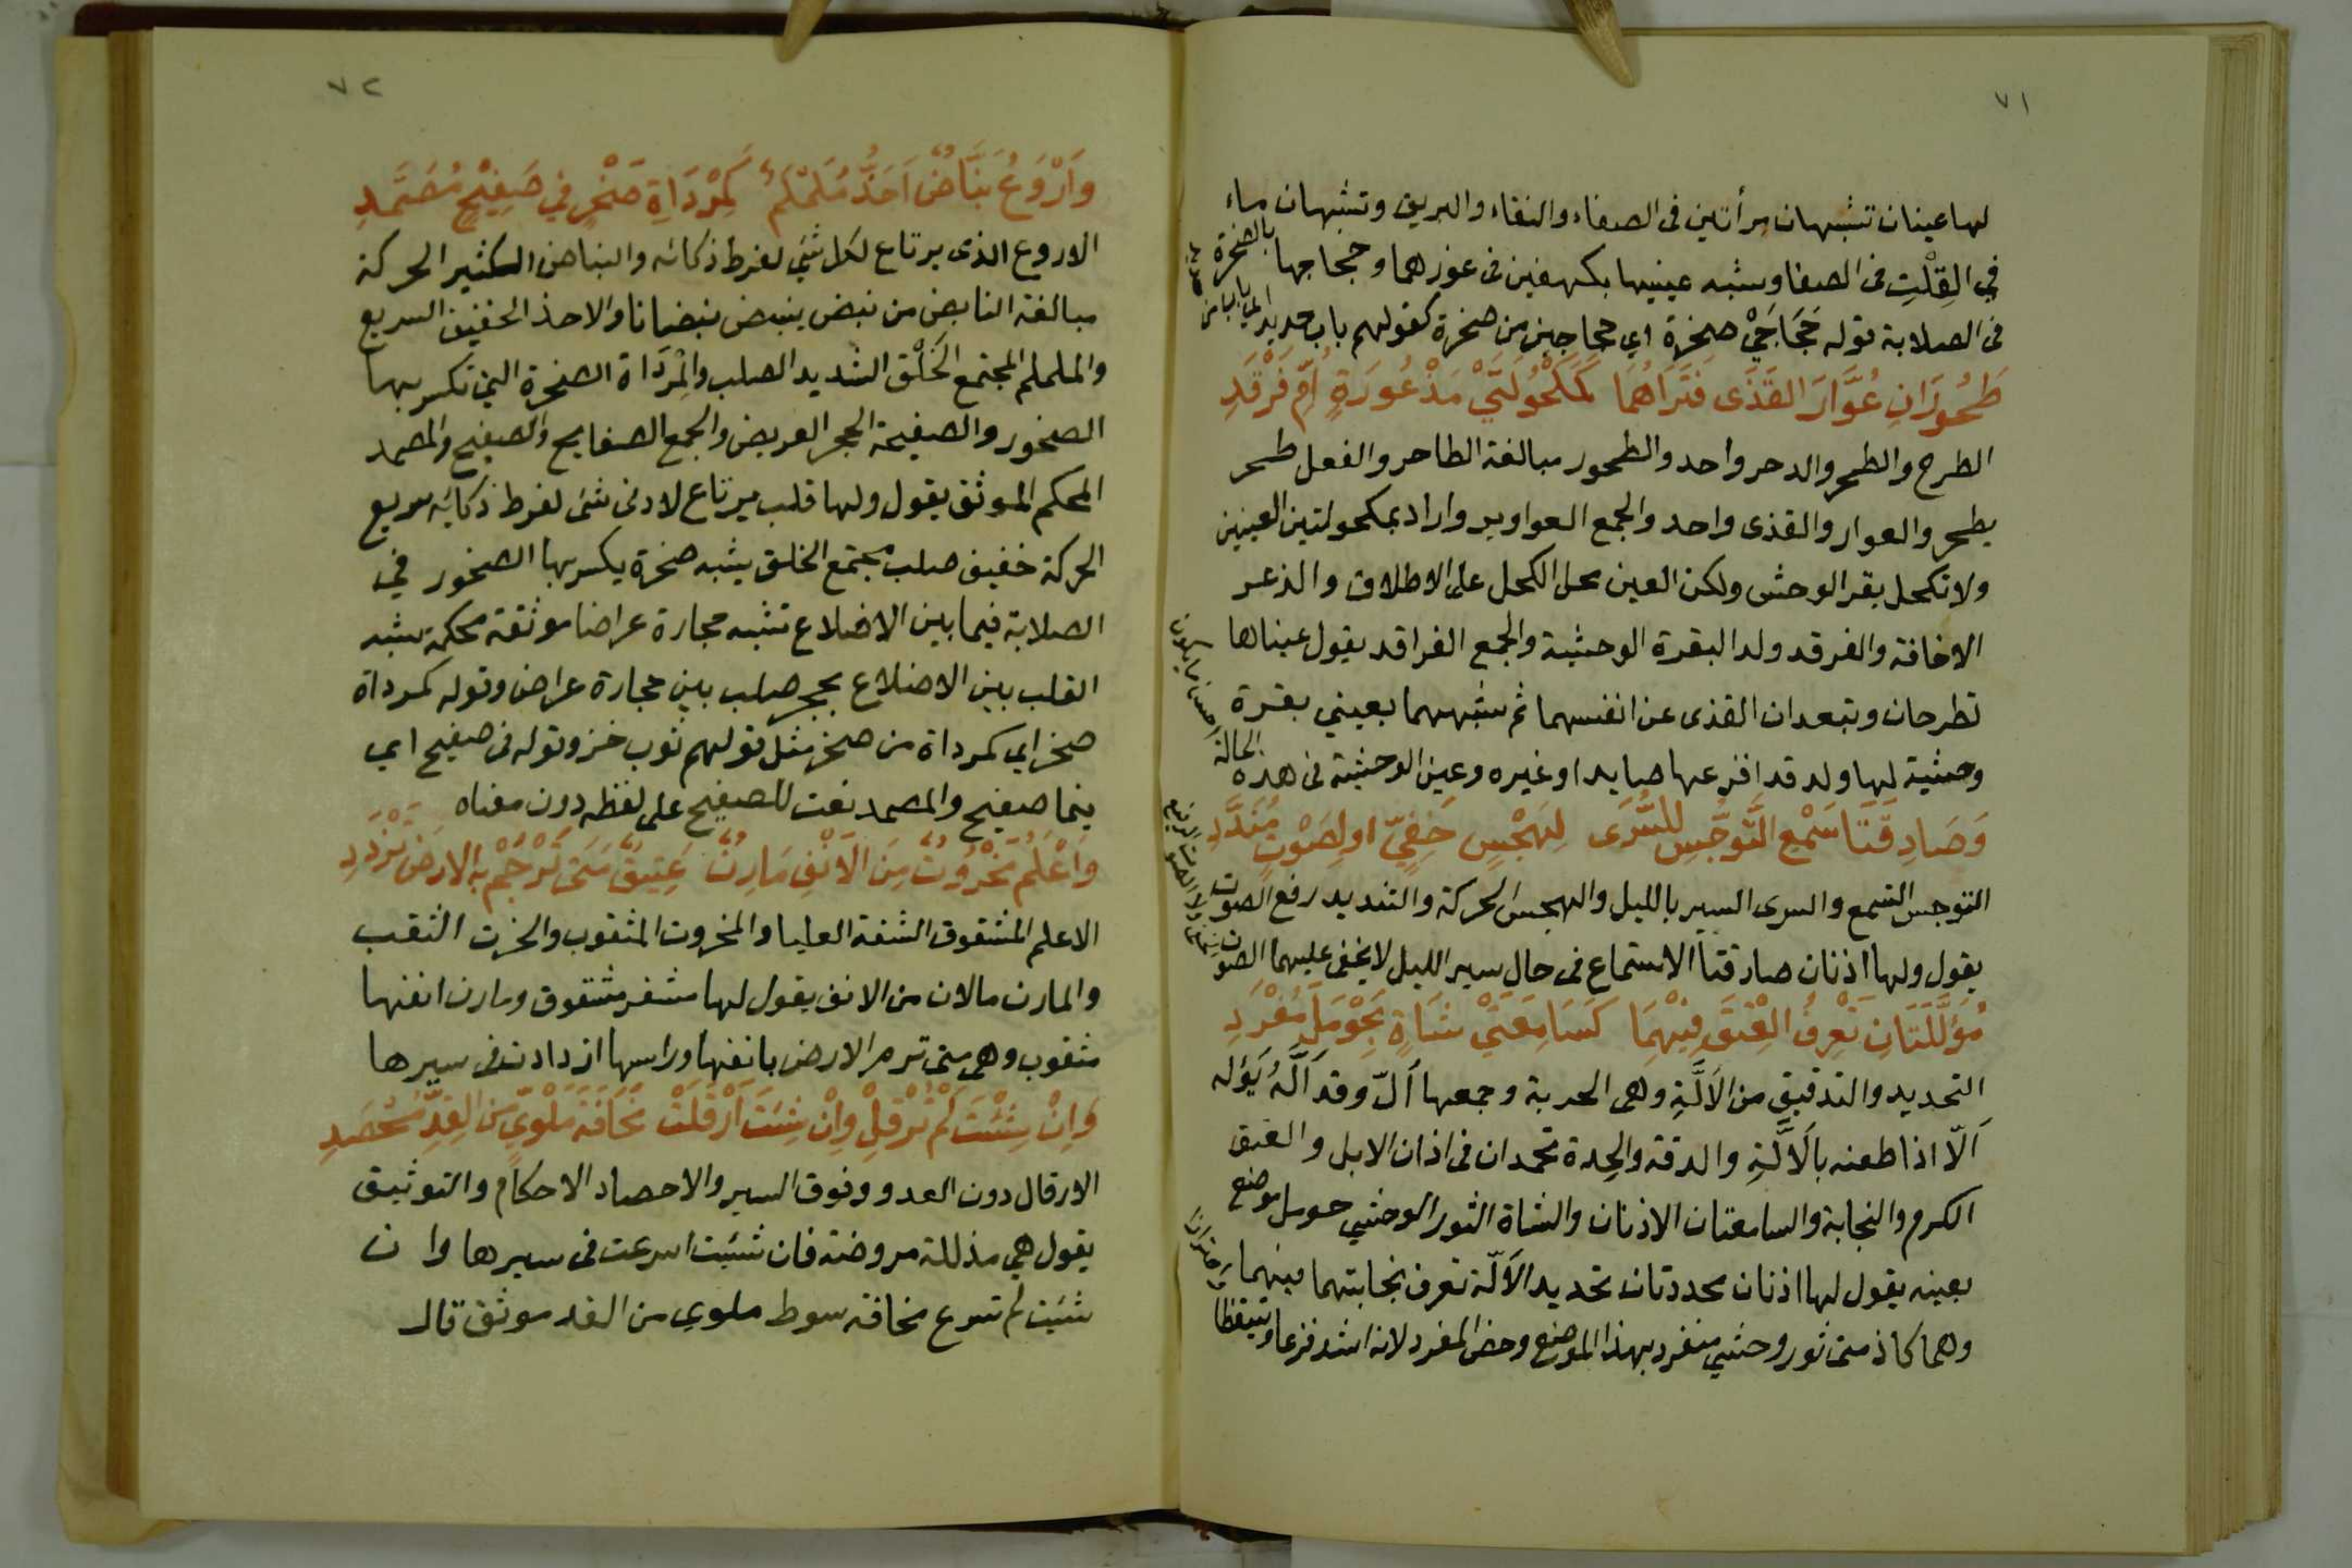 ٧١
لها عينان تشبهان مرأتين فى الصفاء والنقاء والبريق وتشبهان ماء
في القِلْتِ فى الصفا وشبه عينيها بكهفين فى غورهما وحجاجها بالصخرة
فى الصلابة قوله حَجَاجَيْ صخرة اي حجاجين من صخرة كقولهم باب حديد اي باب من حديد
طَحُورَانِ عُوَّارَ القَذَى فَتَرَاهُمَا كَمَكْحُولَتَيْ مَذْعُورَةٍ اُمِّ فَرْقَدِ
الطرح والطحر والدحر واحد والطحور مبالغة الطاحر والفعل طحر
يطحر والعوار والقذى واحد والجمع العواوير واراد بمكحولتين العينين
ولا تكحل بقر الوحش ولكن العين محل الكحل على الاطلاق والذعر
الاخافة والفرقد ولد البقرة الوحشية والجمع الفراقد يقول عيناها
تطرحان وتبعدان القذى عن انفسهما ثم شبههما بعيني بقرة
وحشية لها ولد قد افزعها صايد او غيره وعين الوحشية فى هذه الحالة احسن ما يكون
وَصَادِقَتَا سَمْعِ التَّوَجُّسِ للسُّرَى لِهَجْسٍ خَفِيٍّ او لِصَوْتٍ مُنَدَّدِ
التوجس التسمع والسرى السير بالليل والهجس الحركة والتنديد رفع الصوت
يقول ولها اذنان صادقتا الاستماع فى حال سير الليل لا يخفى عليهما الصوت الخفى ولا الصوت الرفيع
مُؤَلَّلَتَانِ تَعْرِفُ العِتْقَ فِيْهِمَا كَسَامِعَتَيْ شَاةٍ بِحَوْمَلَ مُفْرَدِ
التحديد والتدقيق من الاَلَّةِ وهى الحربة وجمعها اَلّ وقد اَلَّهُ يَؤله
اَلّا اذا طعنه بالاَلَّةِ والدقة والحِدة تحمدان فى اذان الابل والعتق
الكرم والنجابة والسامعتان الاذنان والشاة الثور الوحشي حومل موضع
بعينه يقول لها اذنان محددتان تحديد الاَلّة تعرف نجابتهما فيهما
وهما كاذنى ثور وحشي منفرد بهذا الموضع وخص المفرد لانه اشد فزعا وتيقظا واحترازا
٧٢
وَاَرْوَعُ نَبَّاضٌ اَحَذُّ مُلَمْلَمٌ كَمِرْدَاةِ صَخْرٍ في صَفِيْحٍ مُصَمَّدِ
الاروع الذى يرتاع لكل شئي لفرط ذكائه والنباض الكثير الحركة
مبالغة النابض من نبض ينبض نبضانا والاحذ الخفيف السريع
والململم المجتمع الخَلْق الشديد الصلب والمِرْدَاة الصخرة التي تكسر بها
الصخور والصفيحة الحجر العريض والجمع الصفايح والصفيح والمصمد
المحكم الموثق يقول ولها قلب يرتاع لادنى شئ لفرط ذكائه سريع
الحركة خفيف صلب مجتمع الخلق يشبه صخرة يكسر بها الصخور في
الصلابة فيما بين الاضلاع تشبه حجارة عراضا موثقة محكمة شبه
القلب بين الاضلاع بحجر صلب بين حجارة عراض وقوله كمرداة
صخر اي كمرداة من صخر مثل قولهم ثوب خز وقوله فى صفيح اي
بينما صفيح والمصمد نعت للصفيح على لفظه دون معناه
وَاَعْلَمُ مَخْرُوْتٌ مِنَ الاَنْفِ مَارِنٌ عَتِيقٌ مَتى تَرْجُمْ بِهِ الارضَ تَزْدَدِ
الاعلم المشقوق الشفة العليا والمخروت المثقوب والخرت الثقب
والمارن مالان من الانف يقول لها مشفر مشقوق ومارن انفها
مثقوب وهى متى ترم الارض بانفها وراسها ازدادت فى سيرها
وَاِنْ شِئْتَ لَمْ تُرْقِلْ وَاِنْ شِئتَ اَرْقَلَتْ مَخَافَةَ مَلْوِيٍّ مِنَ القِدِّ مُحْصَدِ
الارقال دون العدو وفوق السير والاحصاد الاحكام والتوثيق
يقول هي مذللة مروضة فان شئت اسرعت فى سيرها وان
شئت لم تسرع مخافة سوط ملوي من القد موثق قال